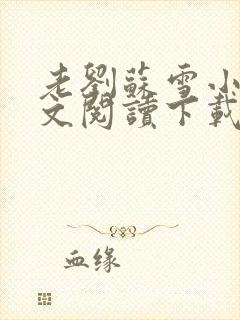 老劉蘇雪小
文閱讀下載
血缘